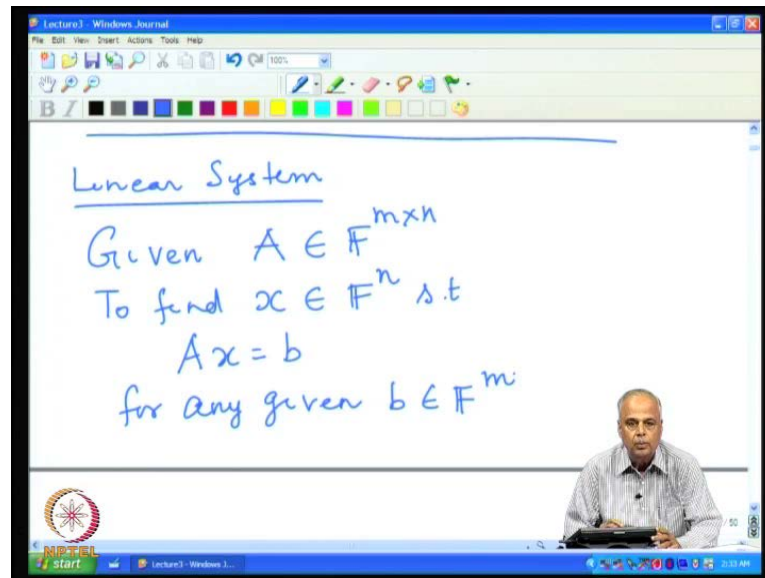 Lecture3 - Windows Journal
File Edit View Insert Actions Tools Help
100%
B I
Linear System
Given A ∈ 𝔽^{m×n}
To find x ∈ 𝔽^n s.t
Ax = b
for any given b ∈ 𝔽^m
/ 50
NPTEL
start Lecture3 - Windows J... 2:33 AM